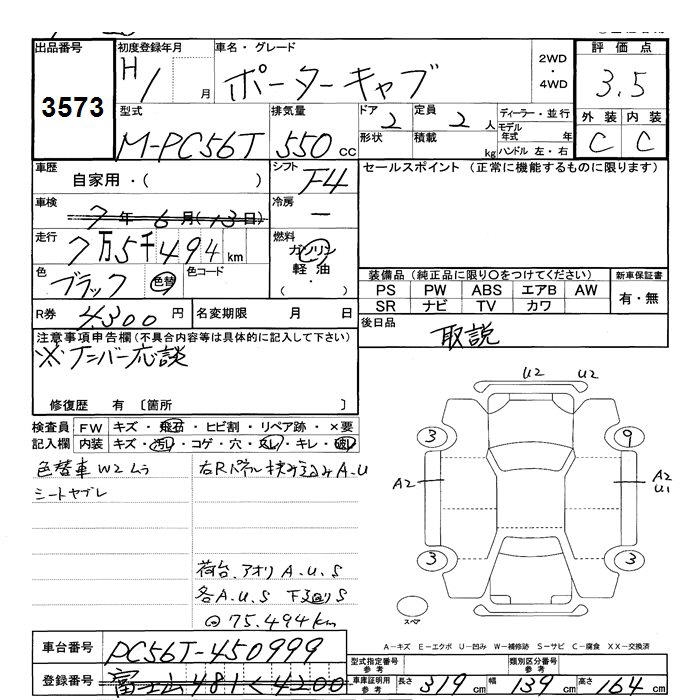 出品番号
3573
初度登録年月
H1 月
車名・グレード
ポーターキャブ
2WD
・
4WD
評価点
3.5
型式
M-PC56T
排気量
550 cc
ドア 2
形状
定員 2 人
積載 kg
ディーラー・並行
モデル年式 年
ハンドル 左・右
外装 内装
C C
車歴
自家用・( )
シフト
F4
セールスポイント (正常に機能するものに限ります)
車検
7年6月(13日)
冷房
ー
走行
7万5千494km
燃料
ガソリン
軽油
( ・ )
色
ブラック
色替
色コード
装備品 (純正品に限り〇をつけてください)
新車保証書
PS PW ABS エアB AW
有・無
SR ナビ TV カワ
R券 4300 円
名変期限 月 日
後日品
取説
注意事項申告欄 (不具合内容等は具体的に記入して下さい)
※ナンバー応談
修復歴 有 〔箇所 〕
検査員
記入欄
FW キズ・飛石・ヒビ割・リペア跡・×要
内装 キズ・汚レ・コゲ・穴・スレ・キレ・破レ
色替車 W2ムラ
シートヤブレ
右Rパネル挟み込みA.U
荷台.アオリ A.U.S
各A.U.S 下廻りS
◎75.494km
U2 U2
3 9
A2 A2
U1
3 3
スペア
A-キズ E-エクボ U-凹み W-補修跡 S-サビ C-腐食 XX-交換済
車台番号
PC56T-450999
登録番号
富士山 481 く 4200
型式指定番号
参考
類別区分番号
参考
車庫証明用
参考
長さ 319 cm 幅 139 cm 高さ 164 cm